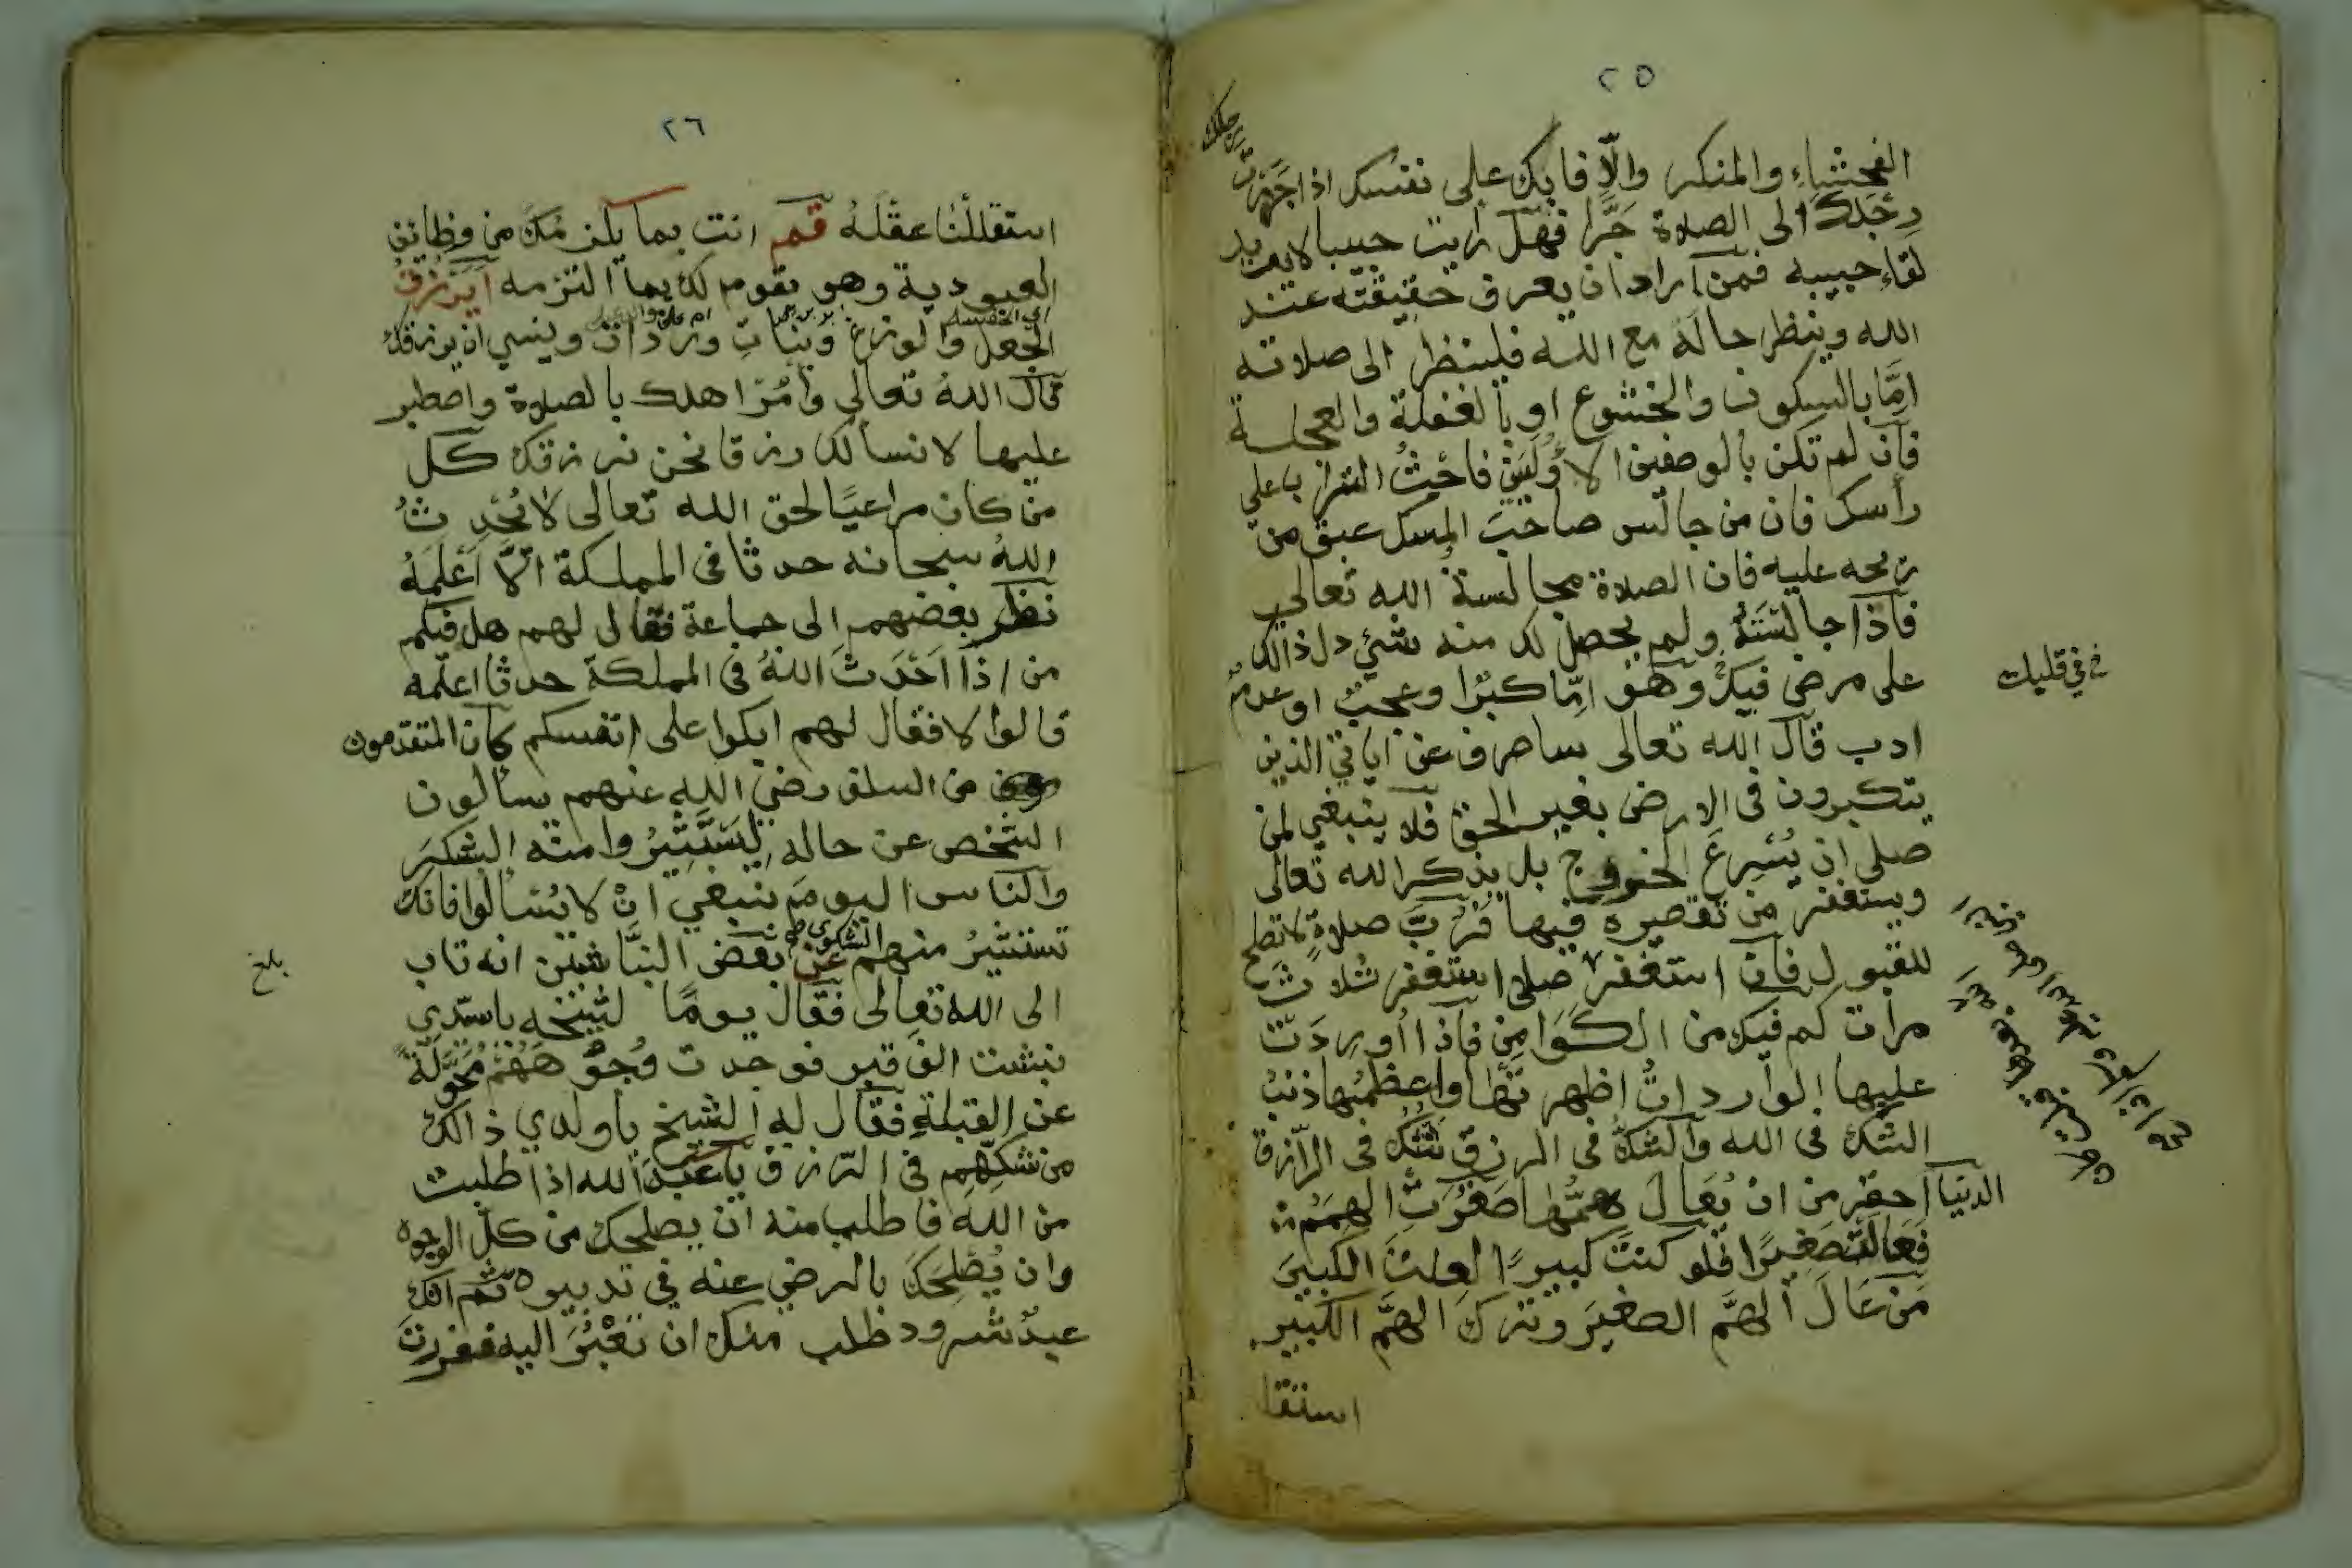 ٢٥
الفحشاء والمنكر والّا فابك على نفسك اذا جَرَرْتَ
رجلك الى الصلاة جَرًّا فهل رايت حبيبا لا يريد
لقاء حبيبه فمن اراد ان يعرف حقيقته عند
الله وينظر حاله مع الله فلينظر الى صلاته
امّا بالسكون والخشوع او بالغفلة والعجلة
فان لم تكن بالوصفين الاولين فاحثُ التراب على
رأسك فان من جالس صاحبَ المسك عبق من
ريحه عليه فان الصلاة مجالسة الله تعالى
فاذا جالسْتَهُ ولم يحصل لك منه شيء دل ذالك
على مرض فيك وهو امّا كبرًا وعجبٌ او عدمُ
في قلبك
ادب قال الله تعالى ساصرف عن اياتي الذين
يتكبرون في الارض بغير الحق فلا ينبغي لمن
صلى ان يُسْرِعَ الخروج بل يذكر الله تعالى
ويستغفر من تقصيره فيها فرُبَّ صلاةٍ لا تصلح
للقبول فان استغفر صلى استغفر ثلاث
مرات كم فيك من الكَوَامِن فاذا اُورِدَتْ
عليها الواردات اظهرتها واعظمُها ذنبُ
الشك في الله والشكُ في الرزق شكٌ في الرّازق
الدنيا احقر من ان يُعَالَ همُّها صَغُرَتِ الهِمَمُ
فعالتْ صغيرًا فلو كنتَ كبيرًا لعلتَ الكبيرَ
مَن عَالَ الهَمَّ الصغيرَ وتركَ الهَمَّ الكبير
استقلـ
٢٦
استقللْنَا عقلَهُ قم انت بما يلزمُكَ من وظائف
العبودية وهو يقوم لك بما التزمه ايرزقُ
الجُعَل والوزغ وبناتِ وردان وينسى ان يرزقك
قال اللهُ تعالى وأمُرْ اهلك بالصلاة واصطبر
عليها لا نسألك رزقا نحن نرزقك كل
من كان مراعيًا لحق الله تعالى لا يُحْدِثُ
اللهُ سبحانه حدثا في المملكة الّا أعْلَمَهُ
نظر بعضهم الى جماعة فقال لهم هل فيكم
من اذا اَحْدَثَ اللهُ في المملكة حدثا اعلمه
قالوا لا فقال لهم ابكوا على انفسكم كان المتقدمون
من السلف رضي الله عنهم يسألون
الشخص عن حاله ليَسْتَثِيرُوا منه الشكرَ
والناس اليومَ ينبغي انْ لا يُسْألوا فانك
تستثيرُ منهم الشكوى عن بعض النبّاشين انه تاب
بلغ
الى الله تعالى فقال يومًا لشيخه يا سيّدي
نبشت الف قبر فوجدت وُجُوهَهُمْ مُحَوَّلَةً
عن القبلةِ فقال له الشيخ يا ولدي ذالك
من شكّهم في الرّزق يا عبدَ الله اذا طلبت
من الله فاطلب منه ان يصلحك من كلّ الوجوه
وان يُصْلِحَكَ بالرضى عنه في تدبيره ثم انك
عبدٌ شرود طلب منك ان تَعْبُرَ اليه ففررت